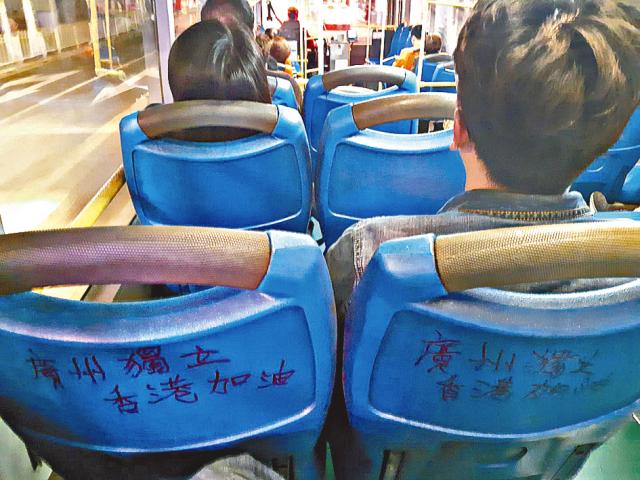 廣州獨立
香港加油
廣州獨立
香港加油